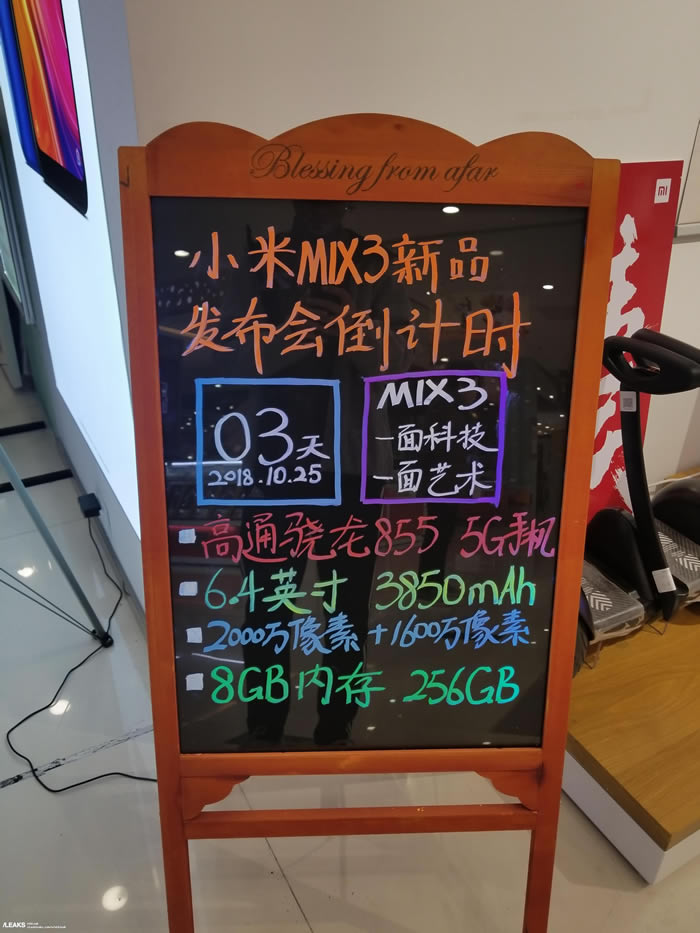 Blessing from afar
小米MIX3新品
发布会倒计时
03天
2018.10.25
MIX3
一面科技
一面艺术
高通骁龙855 5G手机
6.4英寸 3850mAh
2000万像素+1600万像素
8GB内存 256GB
mi
/LEAKS